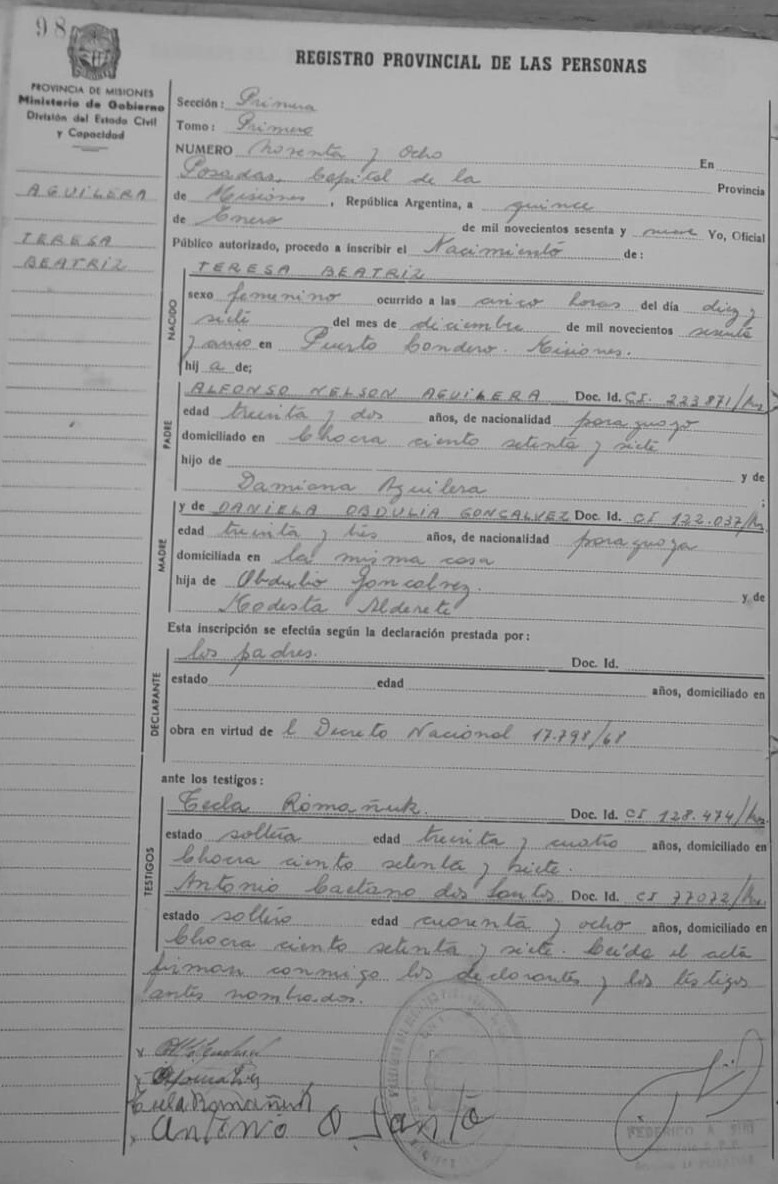 98
REGISTRO PROVINCIAL DE LAS PERSONAS
PROVINCIA DE MISIONES
Ministerio de Gobierno
División del Estado Civil
y Capacidad
AGUILERA
TERESA
BEATRIZ
Sección: Primera
Tomo: Primero
NUMERO Noventa y Ocho En
Posadas, Capital de la Provincia
de Misiones, República Argentina, a quince
de Enero de mil novecientos sesenta y nueve Yo, Oficial
Público autorizado, procedo a inscribir el Nacimiento de:
NACIDO
TERESA BEATRIZ
sexo femenino ocurrido a las cinco horas del día diez y
siete del mes de diciembre de mil novecientos sesenta
y cinco en Puerto Condero. Misiones.
hij a de;
PADRE
ALFONSO NELSON AGUILERA Doc. Id. CI. 223871/Ms
edad treinta y dos años, de nacionalidad paraguayo
domiciliado en Chacra ciento setenta y siete
hijo de y de
Damiana Aguilera ;
MADRE
y de DANIELA OBDULIA GONCALVEZ Doc. Id. CI 122.037/Ms.
edad treinta y tres años, de nacionalidad paraguaya
domiciliada en la misma casa
hija de Obdulio Goncalvez. y de
Modesta Alderete
Esta inscripción se efectúa según la declaración prestada por:
DECLARANTE
los padres. Doc. Id.
estado edad años, domiciliado en
obra en virtud de l Decreto Nacional 17.798/68
ante los testigos:
TESTIGOS
Tecla Romañuk. Doc. Id. CI 128.474/Ms.
estado soltera edad treinta y cuatro años, domiciliado en
Chacra ciento setenta y siete.
Antonio Caetano dos Santos Doc. Id. CI 77072/Ms.
estado soltero edad cuarenta y ocho años, domiciliado en
Chacra ciento setenta y siete. Leída el acta
firman conmigo los declarantes y los testigos
antes nombrados.
Tecla Romañuk
Antonio D Santo
FEDERICO A.